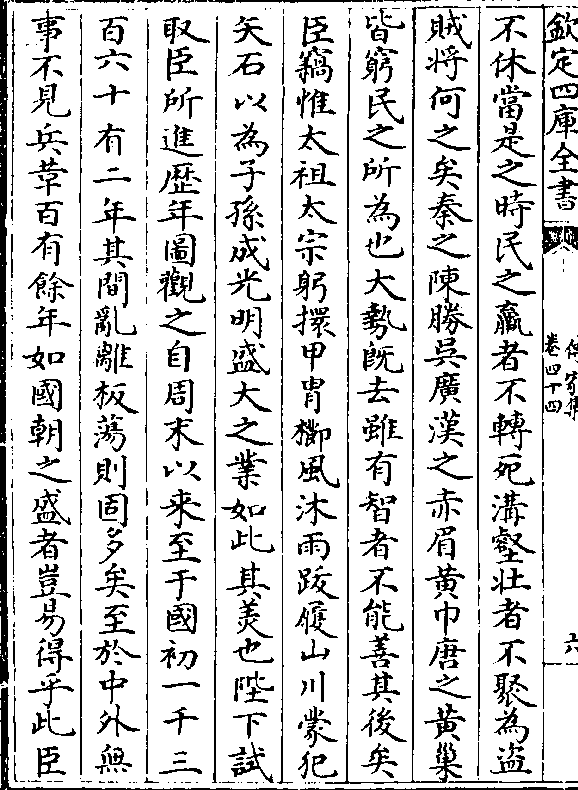 欽定四庫全書
傳家集
卷四十四
六
不休當是之時民之羸者不轉死溝壑壯者不聚為盜
賊將何之矣秦之陳勝吳廣漢之赤眉黃巾唐之黃巢
皆窮民之所為也大勢既去雖有智者不能善其後矣
臣竊惟太祖太宗躬擐甲胄櫛風沐雨跋履山川蒙犯
矢石以為子孫成光明盛大之業如此其美也陛下試
取臣所進歷年圖觀之自周末以來至于國初一千三
百六十有二年其間亂離板蕩則固多矣至於中外無
事不見兵革百有餘年如國朝之盛者豈易得乎此臣